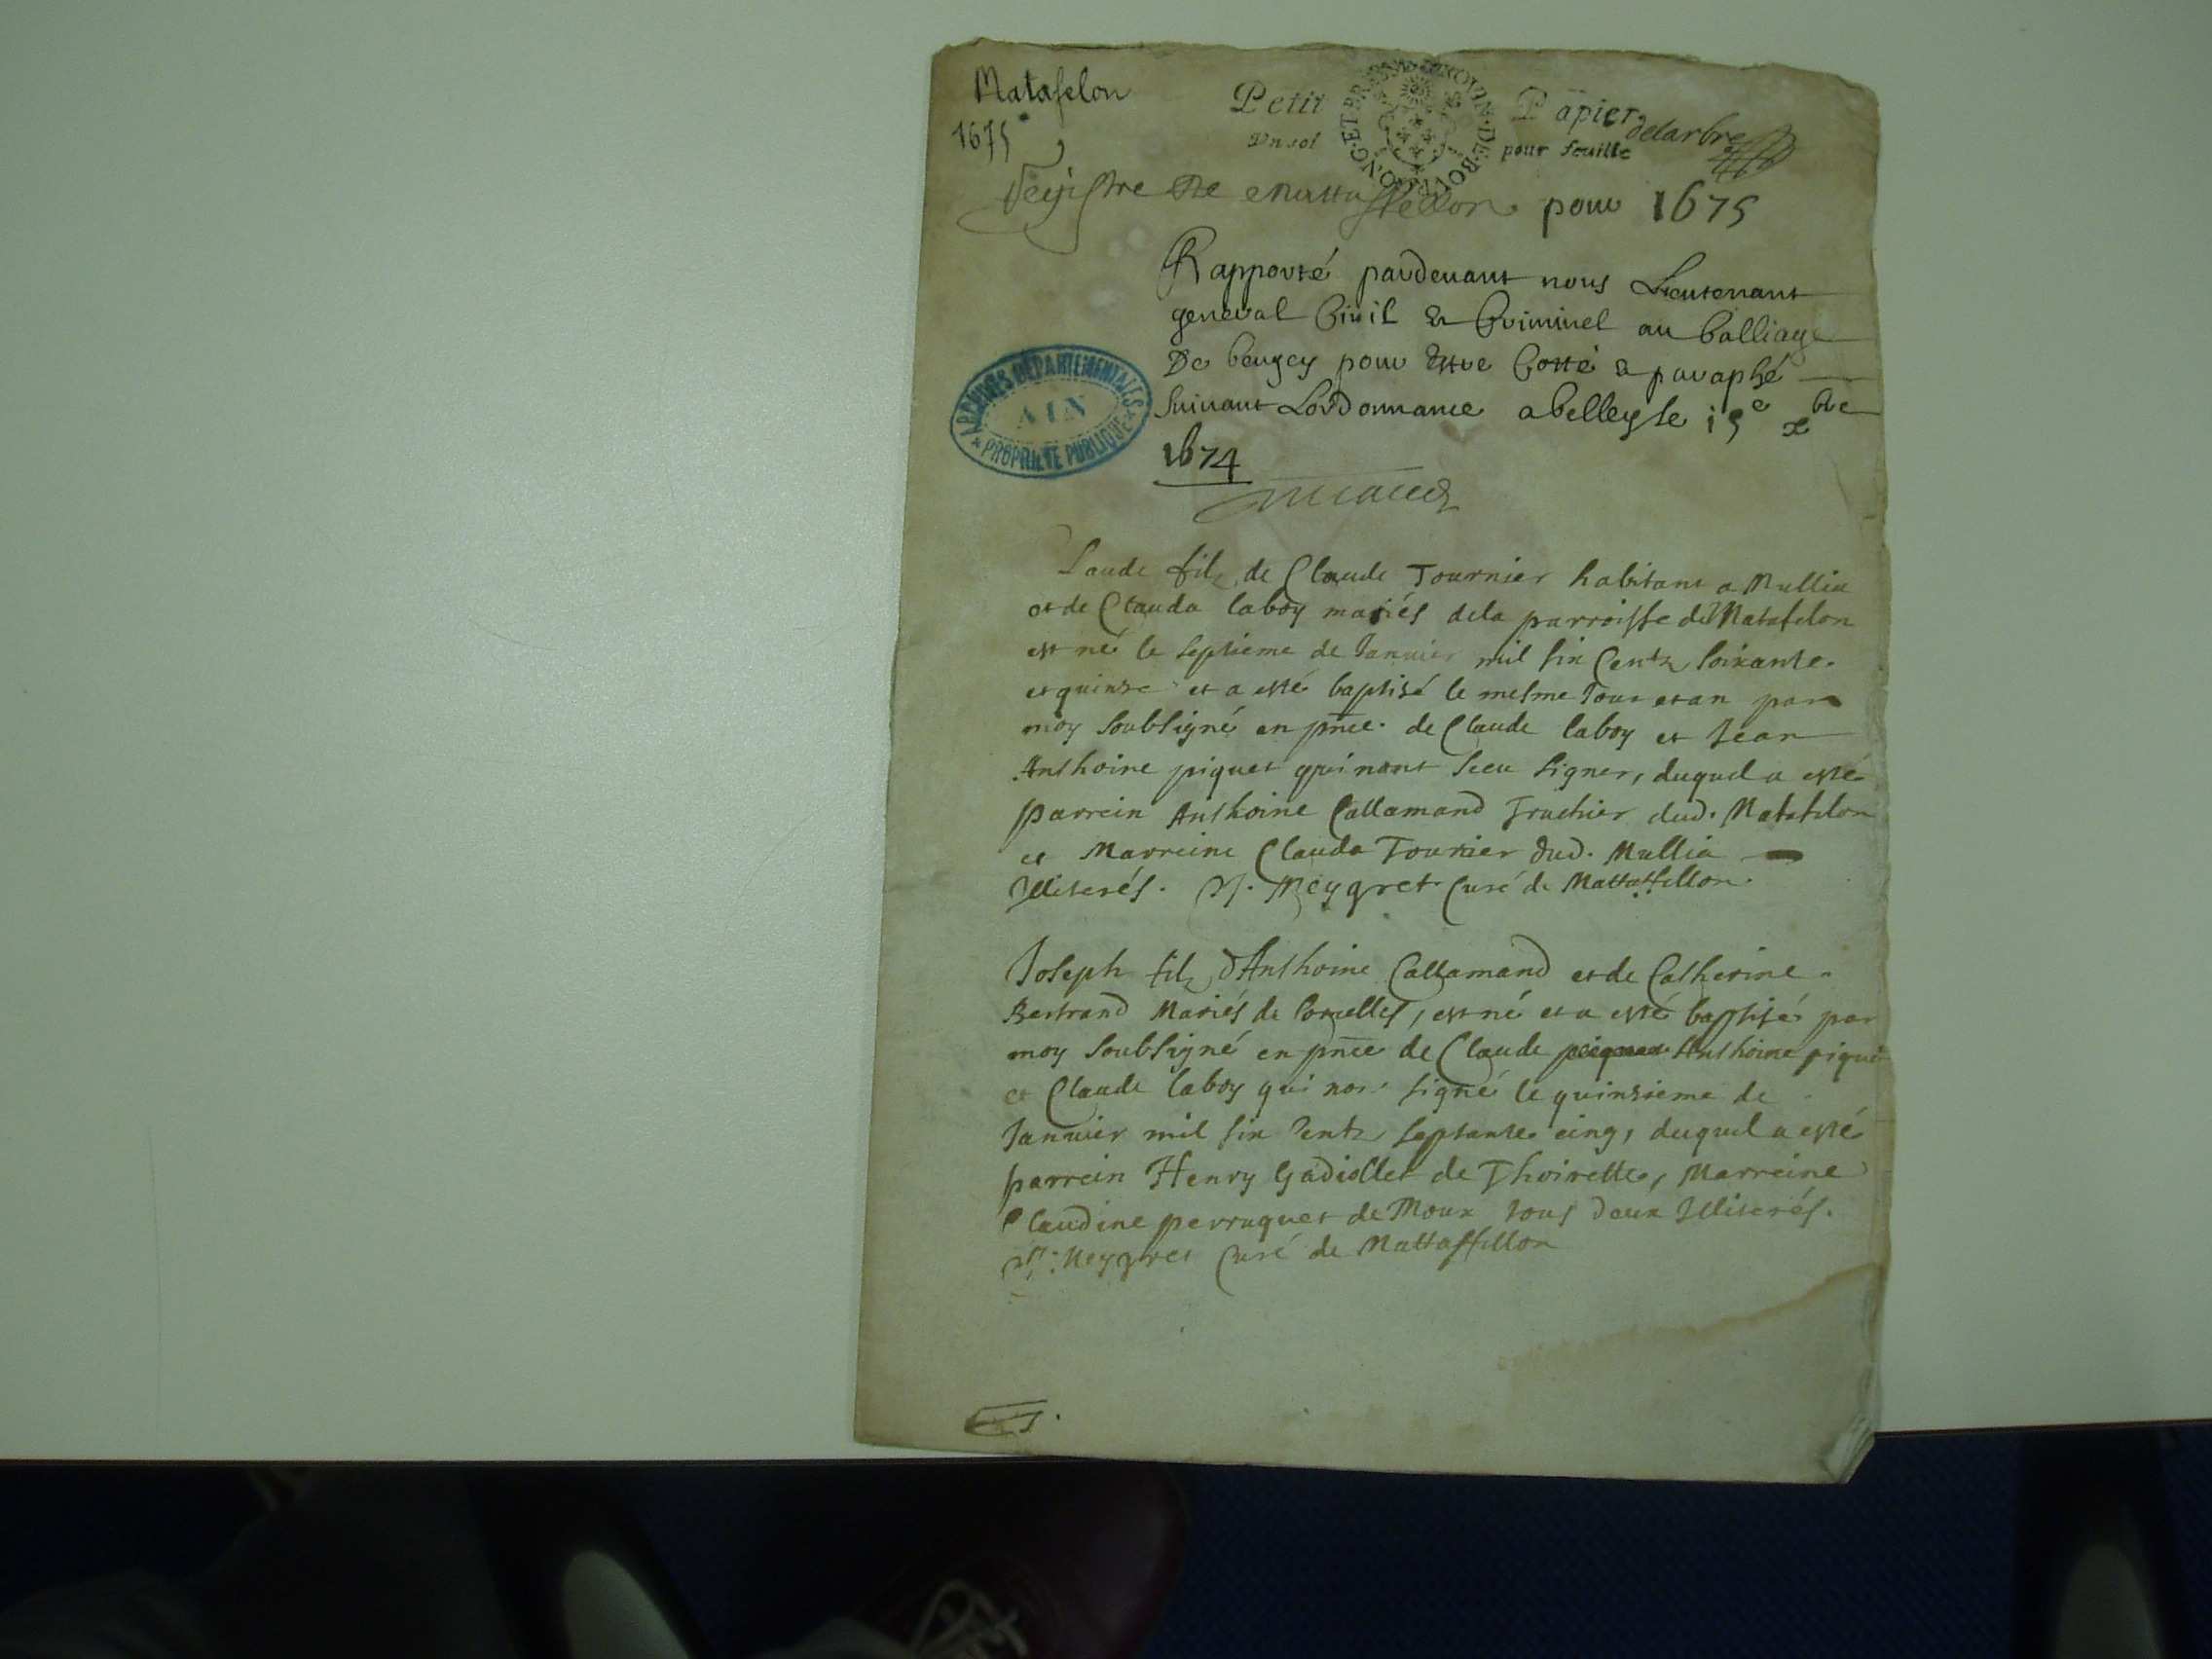 Matafelon
1675
Petit Papier
Un sol pour feuille
delarbre
GENERALITE DE BOURGONG ET BRESSE
Registre De Mattaffellon pour 1675
Rapporté pardevant nous Lieutenant
general Civil & Criminel au balliage
De beugey pour Estre Cotté & paraphé
Suivant Lordonnance a belley le 15e xbre
1674
ARCHIVES DEPARTEMENTALES
AIN
PROPRIETE PUBLIQUE
Laude filz de Claude Tournier habitant a Mullia
et de Clauda laboy mariés dela parroisse de Matafelon
est né le septieme de Janvier mil six Centz soixante
et quinze et a esté baptisé le mesme Jour et an par
moy soubsigné en pnce de Claude laboy et Jean
Anthoine piquet qui nont sceu signer, duquel a esté
parrein Anthoine Callamand fruchier dud. Matafelon
et Marreine Clauda Tournier dud. Mullia
Illiterés. Meygret Curé de Mattaffellon.
Joseph filz d'Anthoine Callamand et de Catherine
Bertrand Mariés de Corcelles, est né et a esté baptisé par
moy soubsigné en pnce de Claude Anthoine pique
et Claude laboy qui non signé le quinzieme de
Janvier mil six Centz septante cinq, duquel a esté
parrein Henry Gadiollet de Thoirette, Marreine
Claudine perruquet de Moux tous deux Illiterés.
Meygret Curé de Mattaffellon